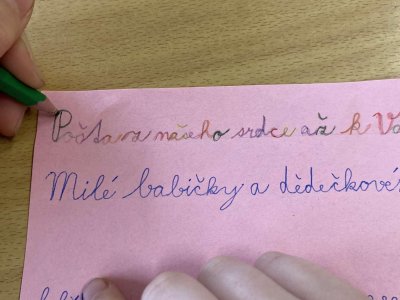 Pošta z našeho srdce až k
Milé babičky a dědečkové